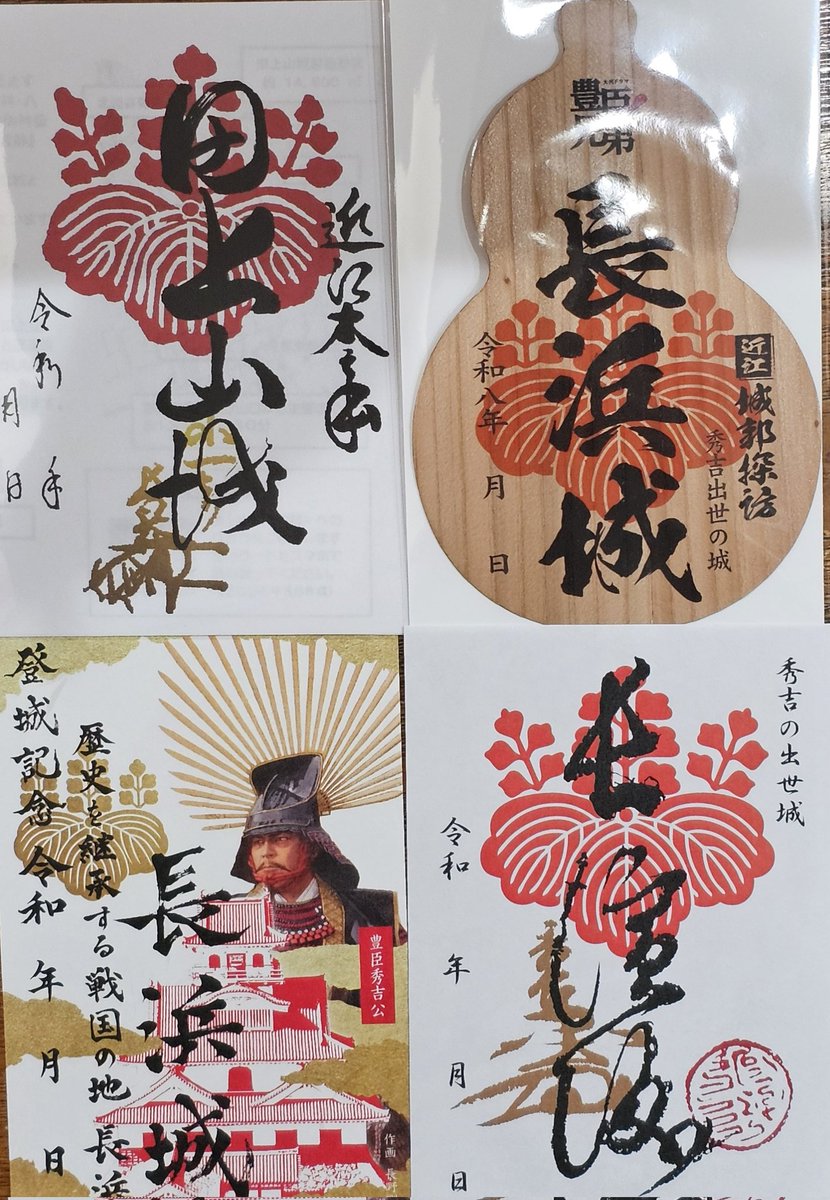 近江木之本
田上山城
令和
年
月
日
大河ドラマ
豊臣兄弟
長浜城
近江
城郭探訪
秀吉出世の城
令和八年
月
日
登城記念 令和 年 月 日
歴史を継承する戦国の地 長浜
長浜城
豊臣秀吉公
作画
秀吉の出世城
長濱城
令和
年
月
日